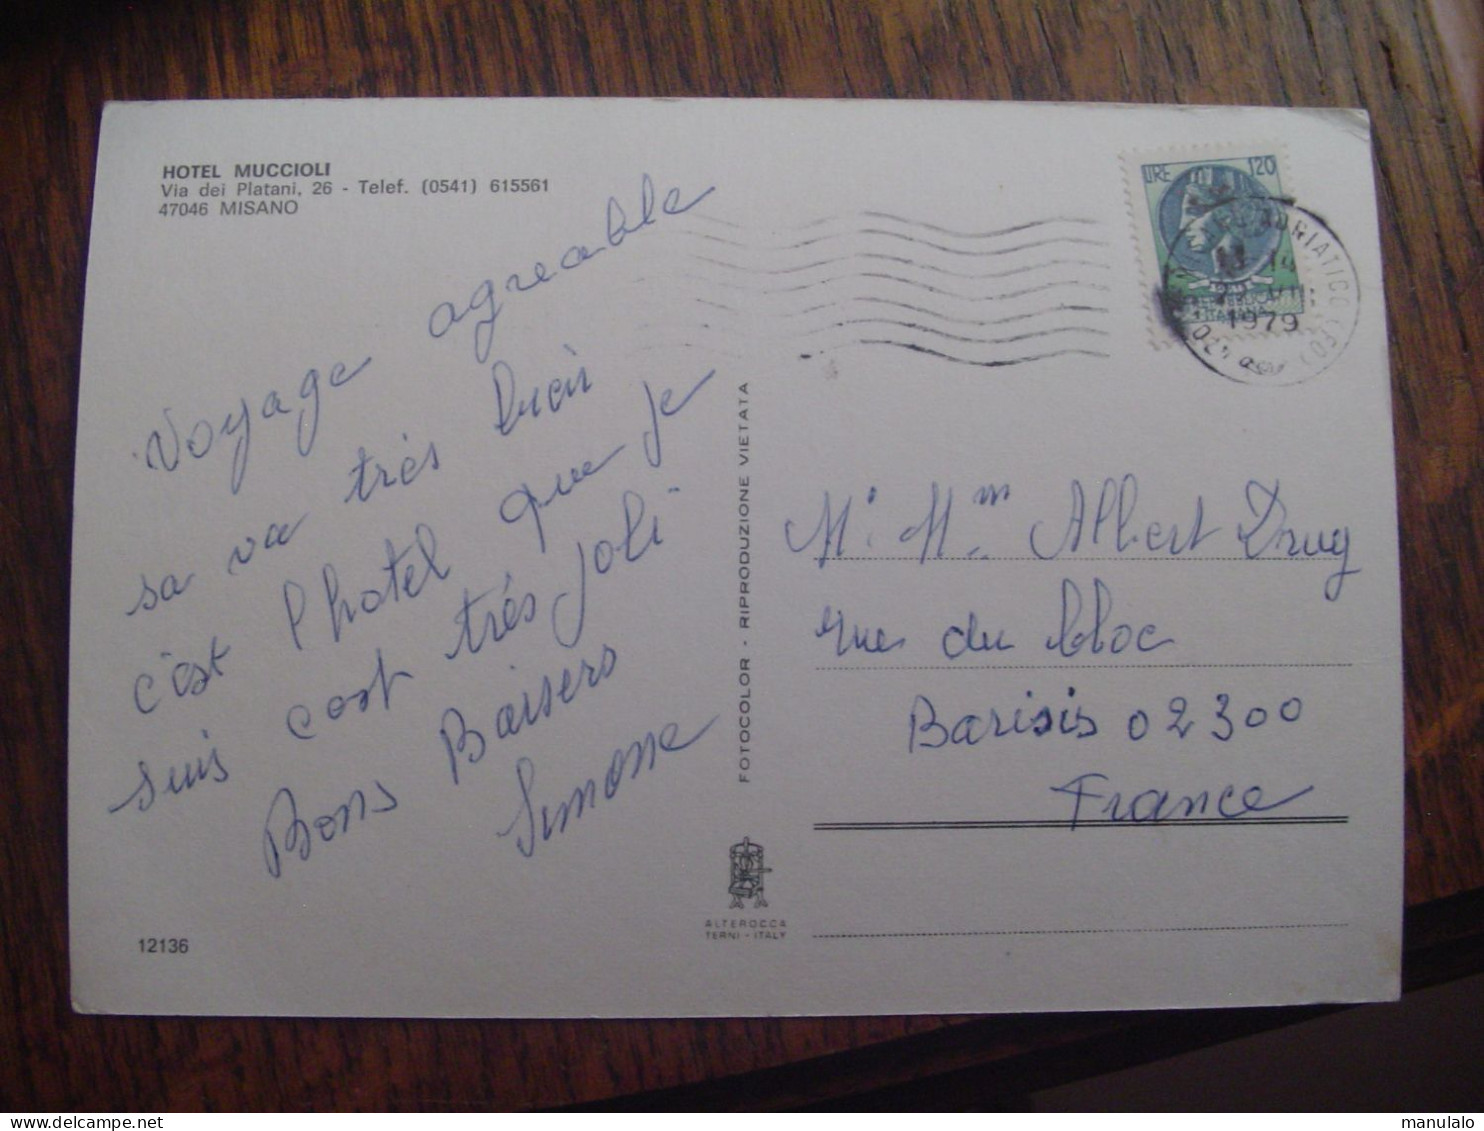 HOTEL MUCCIOLI
Via dei Platani, 26 - Telef. (0541) 615561
47046 MISANO
Voyage agreable
sa va très bien
c'est l'hotel que je
suis c'est très joli
Bons Baisers
Simone
12136
FOTOCOLOR - RIPRODUZIONE VIETATA
ALTEROCCA
TERNI - ITALY
LIRE 120
REPUBBLICA
ITALIANA
ADRIATICO (FO)
1979
Mr. Mme Albert Drug
rue du bloc
Barisis 02300
France
manulalo